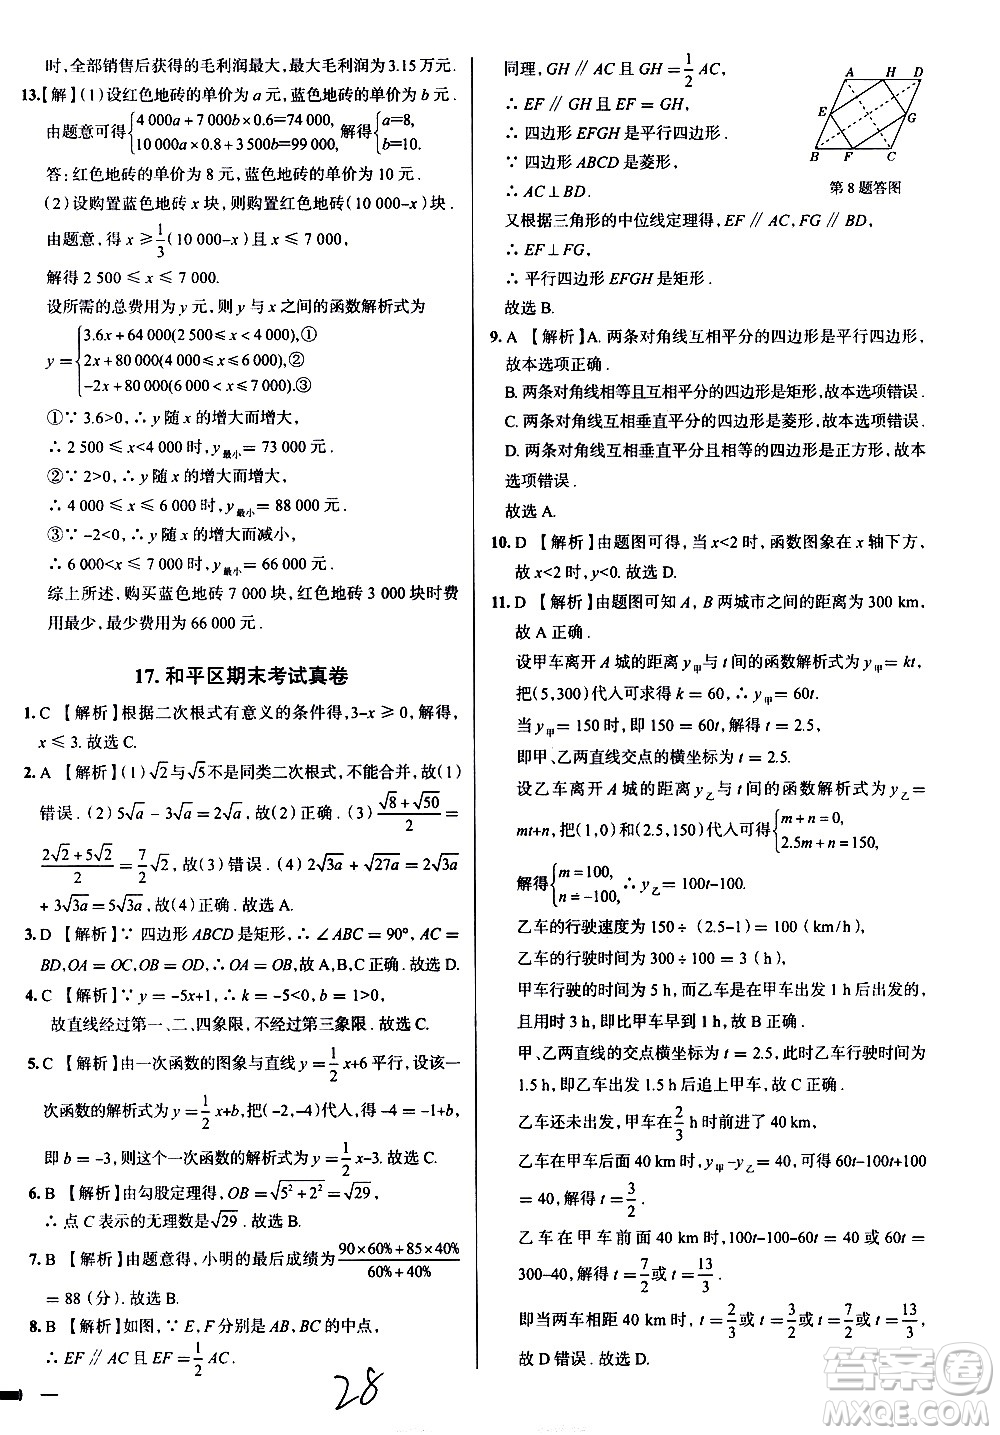 时,全部销售后获得的毛利润最大,最大毛利润为 3.15 万元.
13.【解】(1)设红色地砖的单价为 a 元,蓝色地砖的单价为 b 元.
由题意可得{4 000a+7 000b×0.6=74 000, 10 000a×0.8+3 500b=99 000, 解得{a=8, b=10.
答:红色地砖的单价为 8 元,蓝色地砖的单价为 10 元.
(2)设购置蓝色地砖 x 块,则购置红色地砖(10 000-x)块.
由题意,得 x ≥ 1/3(10 000-x)且 x ≤ 7 000,
解得 2 500 ≤ x ≤ 7 000.
设所需的总费用为 y 元,则 y 与 x 之间的函数解析式为
y={3.6x+64 000(2 500 ≤ x<4 000),①
2x+80 000(4 000 ≤ x ≤ 6 000),②
-2x+80 000(6 000<x ≤ 7 000).③
①∵ 3.6>0,∴ y 随 x 的增大而增大,
∴ 2 500 ≤ x<4 000 时,y最小= 73 000 元.
②∵ 2>0,∴ y 随 x 的增大而增大,
∴ 4 000 ≤ x ≤ 6 000 时,y最小= 88 000 元.
③∵ -2<0,∴ y 随 x 的增大而减小,
∴ 6 000<x ≤ 7 000 时,y最小= 66 000 元.
综上所述,购买蓝色地砖 7 000 块,红色地砖 3 000 块时费
用最少,最少费用为 66 000 元.
17. 和平区期末考试真卷
1. C 【解析】根据二次根式有意义的条件得,3-x ≥ 0,解得,
x ≤ 3.故选 C.
2. A 【解析】(1)√2与√5不是同类二次根式,不能合并,故(1)
错误.(2) 5√a - 3√a = 2√a,故(2)正确.(3) (√8+√50)/2 =
(2√2+5√2)/2 = 7/2 √2,故(3)错误.(4) 2√3a + √27a = 2√3a
+ 3√3a = 5√3a,故(4)正确.故选 A.
3. D 【解析】∵ 四边形 ABCD 是矩形,∴ ∠ABC = 90°,AC =
BD,OA = OC,OB = OD,∴ OA = OB,故 A,B,C 正确.故选 D.
4. C 【解析】∵ y = -5x+1,∴ k = -5<0,b = 1>0,
故直线经过第一、二、四象限,不经过第三象限.故选 C.
5. C 【解析】由一次函数的图象与直线 y = 1/2 x+6 平行,设该一
次函数的解析式为 y = 1/2 x+b,把(-2,-4)代入,得 -4 = -1+b,
即 b = -3,则这个一次函数的解析式为 y = 1/2 x-3.故选 C.
6. B 【解析】由勾股定理得,OB = √(5²+2²) = √29,
∴ 点 C 表示的无理数是 √29 .故选 B.
7. B 【解析】由题意得,小明的最后成绩为 (90×60%+85×40%)/(60%+40%)
= 88(分).故选 B.
8. B 【解析】如图,∵ E,F 分别是 AB,BC 的中点,
∴ EF ∥ AC 且 EF = 1/2 AC.
28
同理,GH ∥ AC 且 GH = 1/2 AC,
∴ EF ∥ GH 且 EF = GH.
∴ 四边形 EFGH 是平行四边形.
∵ 四边形 ABCD 是菱形,
∴ AC ⊥ BD.
A H D
E G
B F C
第 8 题答图
又根据三角形的中位线定理得,EF ∥ AC,FG ∥ BD,
∴ EF ⊥ FG.
∴ 平行四边形 EFGH 是矩形.
故选 B.
9. A 【解析】A. 两条对角线互相平分的四边形是平行四边形,
故本选项正确.
B. 两条对角线相等且互相平分的四边形是矩形,故本选项错误.
C. 两条对角线互相垂直平分的四边形是菱形,故本选项错误.
D. 两条对角线相等且互相垂直平分的四边形是正方形,故本
选项错误.
故选 A.
10. D 【解析】由题图可得,当 x<2 时,函数图象在 x 轴下方,
故 x<2 时,y<0. 故选 D.
11. D 【解析】由题图可知 A,B 两城市之间的距离为 300 km,
故 A 正确.
设甲车离开 A 城的距离 y甲与 t 间的函数解析式为 y甲= kt,
把(5,300)代入可得 k = 60,∴ y甲= 60t.
当 y甲= 150 时,即 150 = 60t,解得 t = 2.5,
即甲、乙两直线交点的横坐标为 t = 2.5.
设乙车离开 A 城的距离 y乙与 t 间的函数解析式为 y乙=
mt+n,把(1,0)和(2.5,150)代入可得{m + n = 0, 2.5m + n = 150,
解得{m = 100, n = -100,∴ y乙= 100t-100.
乙车的行驶速度为 150÷(2.5-1) = 100(km/h),
乙车的行驶时间为 300÷100 = 3(h),
甲车行驶的时间为 5 h,而乙车是在甲车出发 1 h 后出发的,
且用时 3 h,即比甲车早到 1 h,故 B 正确.
甲、乙两直线的交点横坐标为 t = 2.5,此时乙车行驶时间为
1.5 h,即乙车出发 1.5 h 后追上甲车,故 C 正确.
乙车还未出发,甲车在 2/3 h 时前进了 40 km,
乙车在甲车后 40 km 时,y甲-y乙= 40,可得 60t-100t+100
= 40,解得 t = 3/2.
乙车在甲车前面 40 km 时,100t-100-60t = 40 或 60t =
300-40,解得 t = 7/2 或 t = 13/3.
即当两车相距 40 km 时,t = 2/3 或 t = 3/2 或 t = 7/2 或 t = 13/3,
故 D 错误.故选 D.
答案圈
MXQE.COM